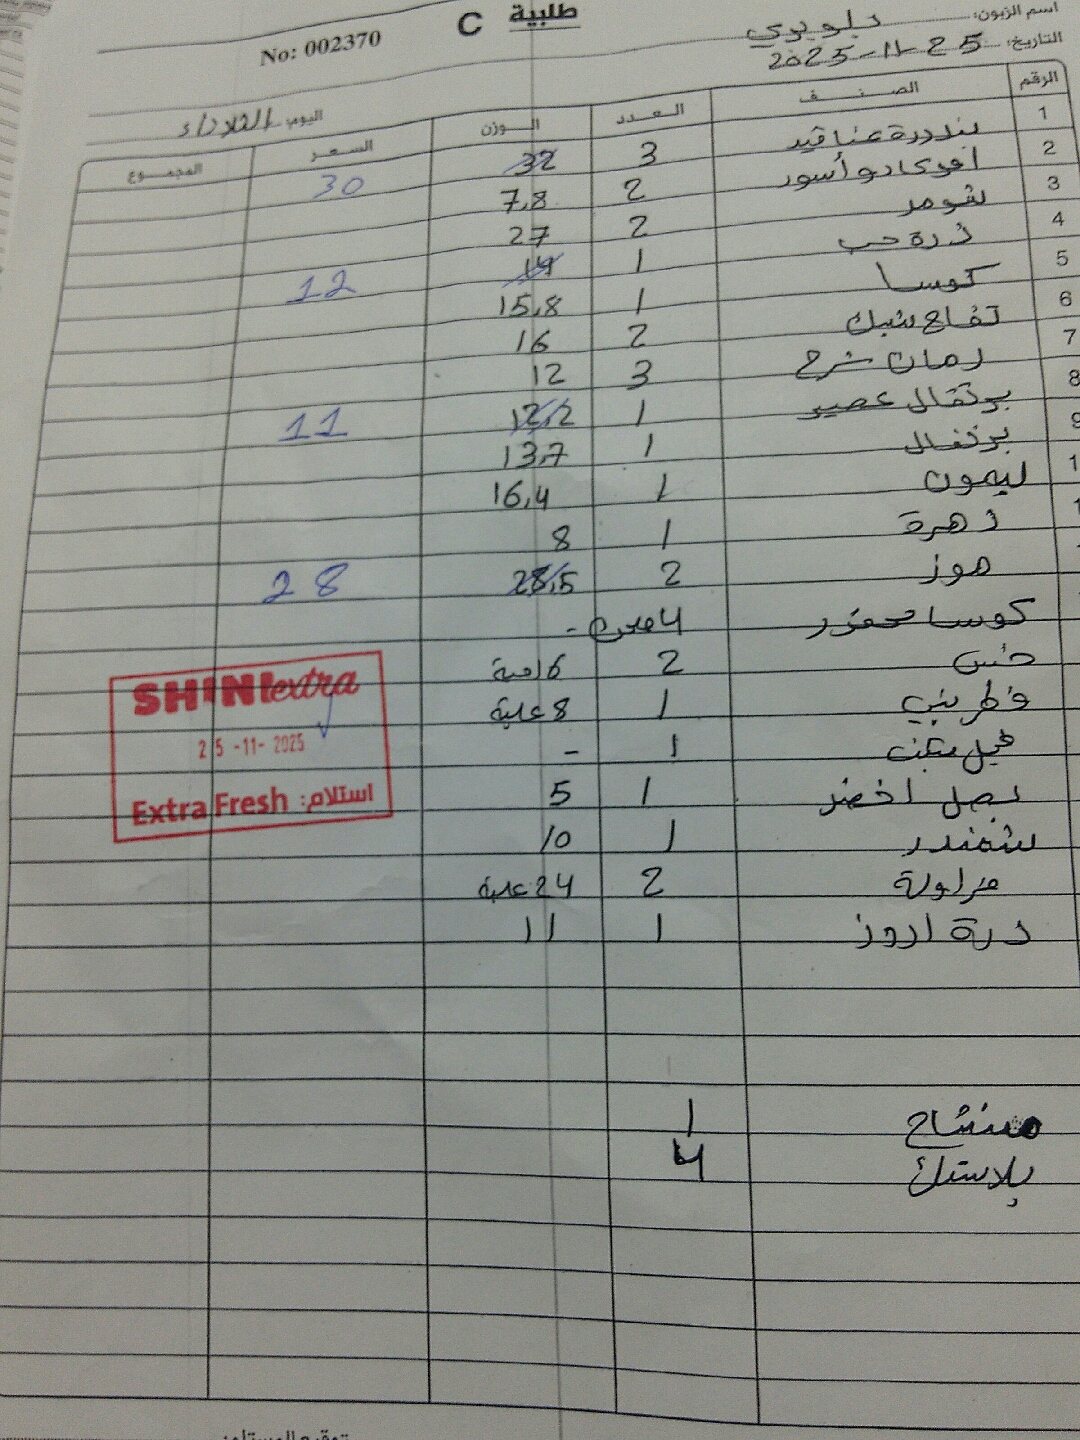 طلبية C
No: 002370
اسم الزبون:
التاريخ: 2025-11-25
اليوم: الثلاثاء
الرقم الصنف العدد الوزن السعر المجموع
1 بندورة عناقيد 3 32 30
2 افوكادو أسود 2 7,8
3 شومر 2 27
4 ذرة حب 1 14 12
5 كوسا 1 15,8
6 تفاح شبك 2 16
7 رمان شرح 3 12
8 برتقال عصير 1 12,2 11
9 برتقال 1 13,7
1 ليمون 1 16,4
1 زهرة 1 8
موز 2 28,5 28
كوسا محفور 4 -
خس 2 6
فطر بني 1 8 علبة
1 -
بصل اخضر 1 5
شمندر 1 10
فراولة 2 24 علبة
1 11
SHINI extra
25-11-2025
Extra Fresh استلام:
1
بلاستك 4